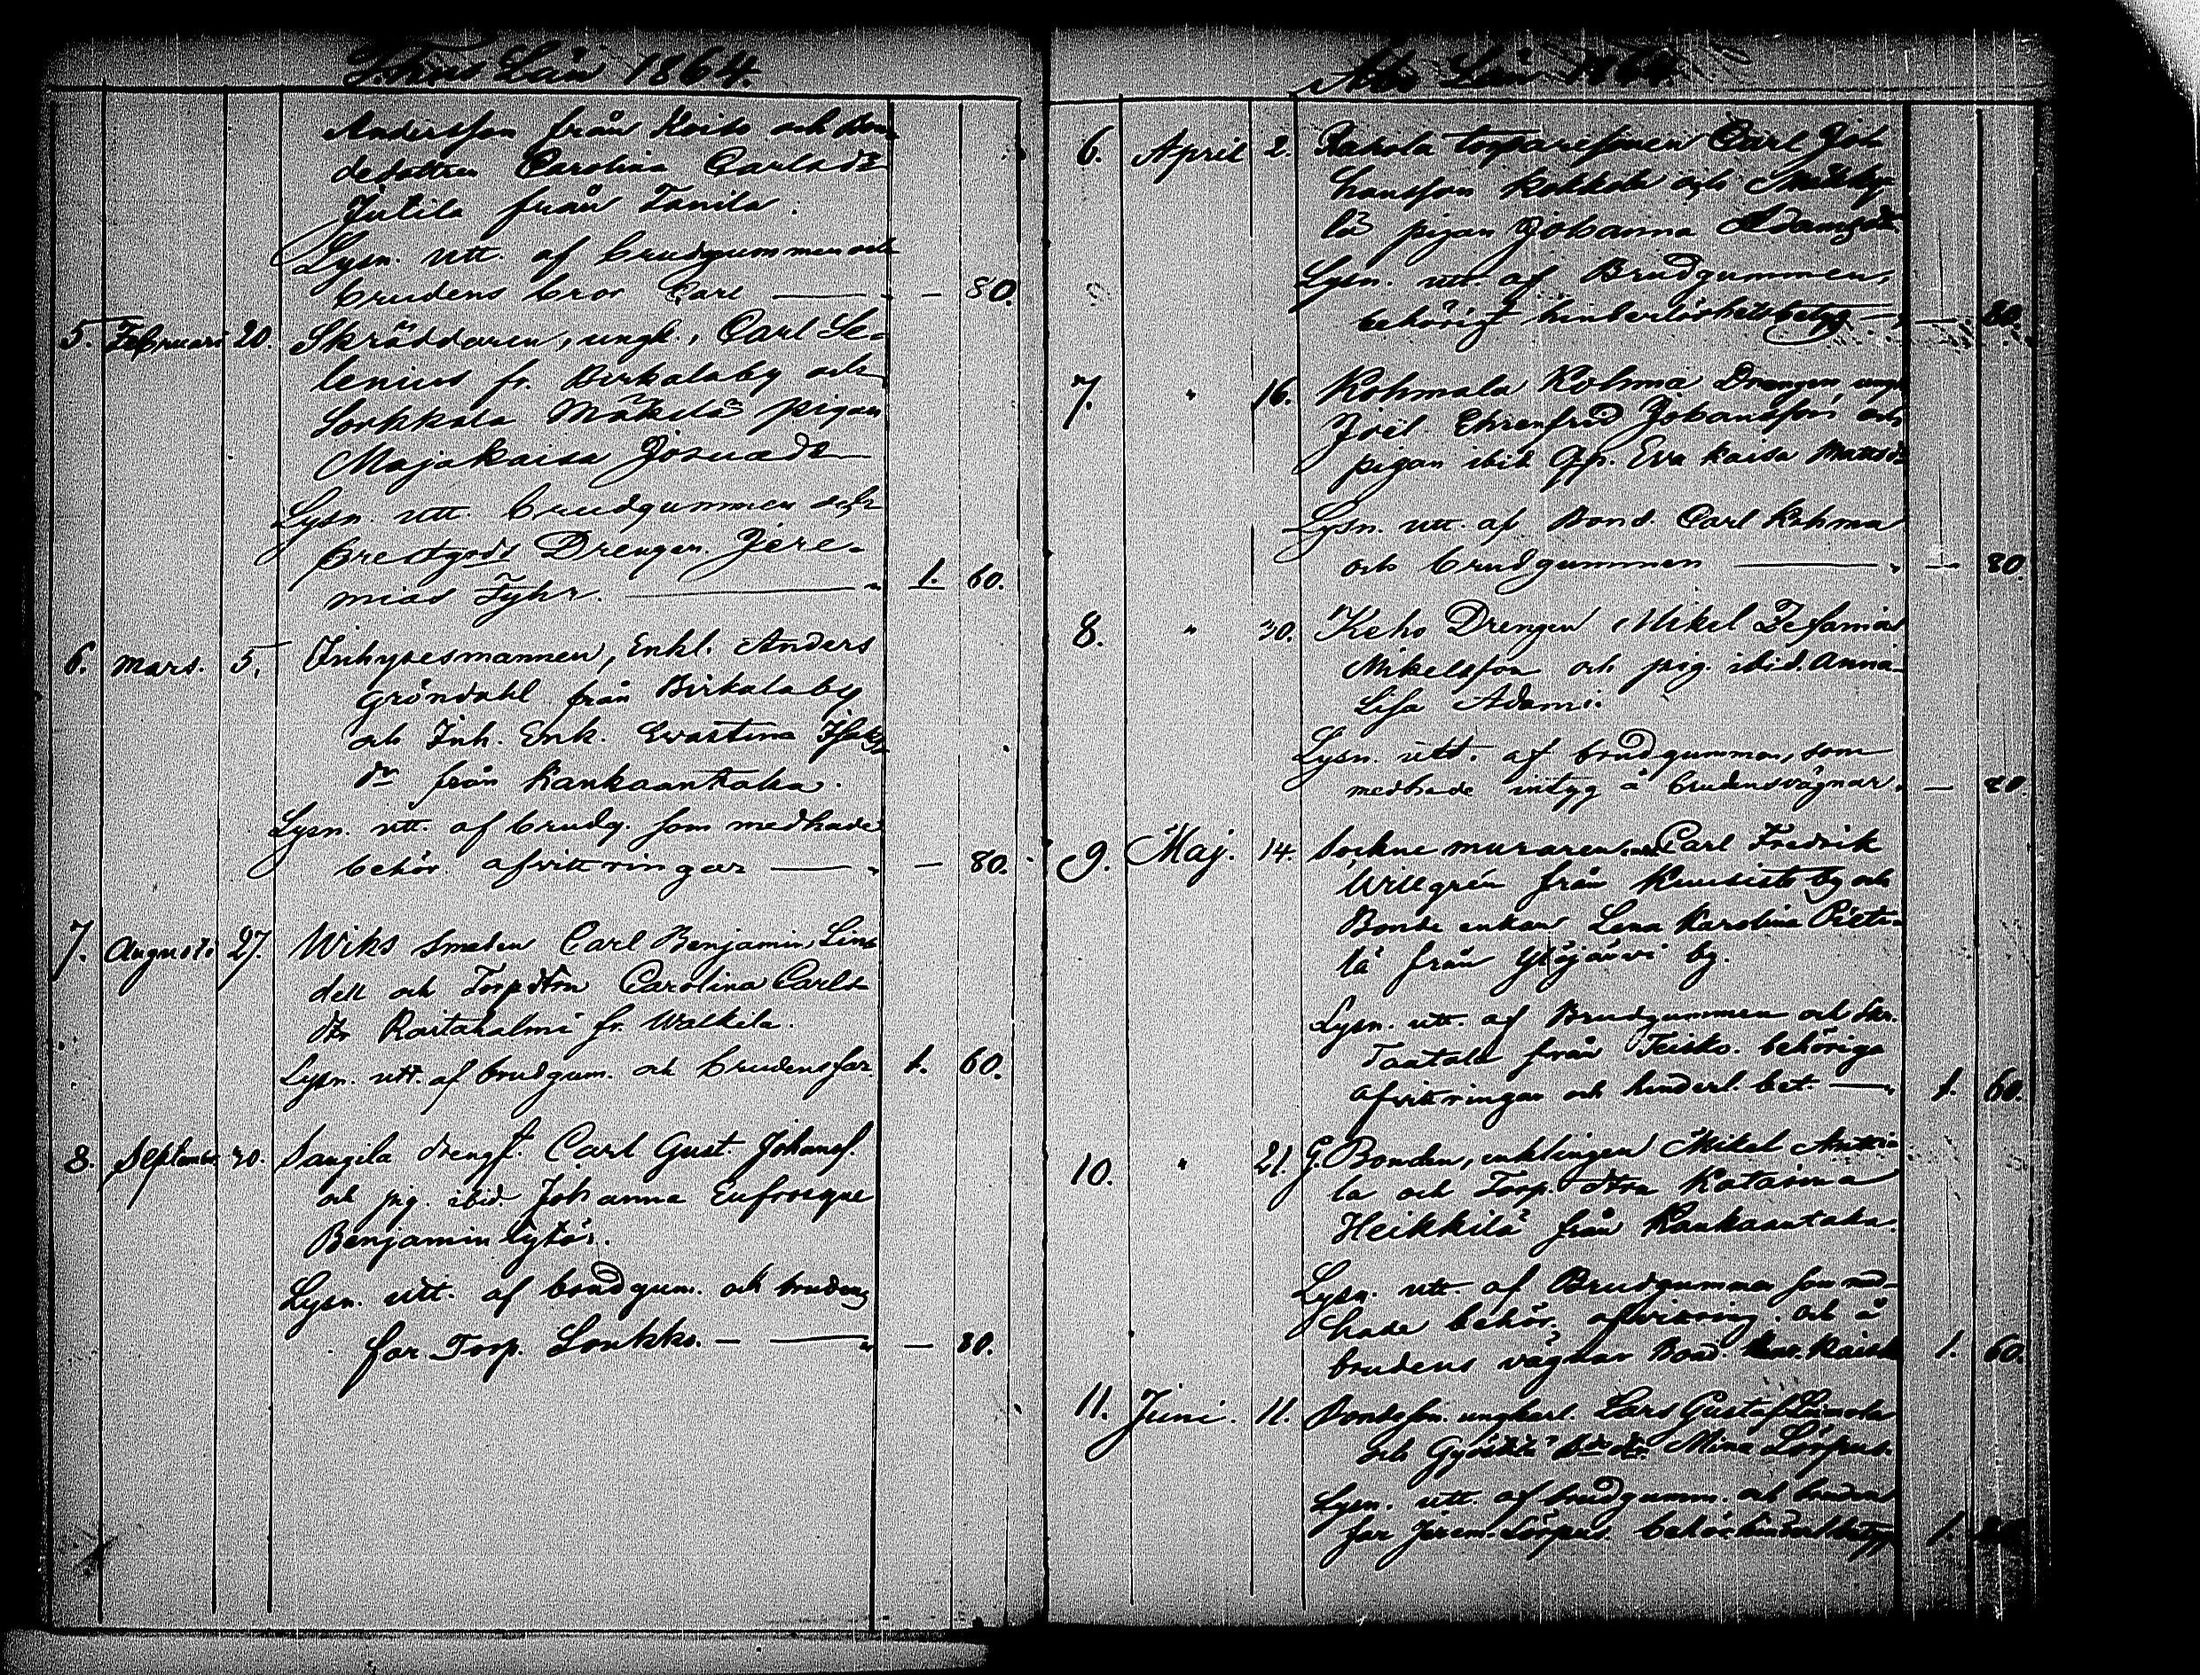 Thus Län 1864.
Andersson från Koito och Bon-
dedottren Carolina Carlsdr
Jutila från Tanila.
Lysn. utt. af brudgummen och
brudens bror Carl — — 80.
5. Februari 20. Skräddaren, ungk., Carl Se-
lenius fr. Birkalaby och
Sorkkala Mäkelä pigan
Majakaisa Josuadr
Lysn. utt. brudgummen och
Prestgods Drengen Jere-
mias Fyhr. — 1. 60.
6. Mars. 5. Inhysesmannen, Enkl. Anders
Gröndahl från Birkalaby
och Inh. Enk. Evastina Isaks
dr från Kankaantaka.
Lysn. utt. af brudg. som medhade
behör. afvittringar — — 80.
7. Augusti 27. Wiks Smeden Carl Benjamin Lin-
dell och Torpdtrn Carolina Carls
dr Rastahalmi fr. Walkila.
Lysn. utt. af brudgum. och brudens far. 1. 60.
8. September 30. Saugila drengf. Carl Gust. Johansf.
och pig. ibid. Johanna Eufrosyne
Benjamin
Lysn. utt. af brudgum. och brudens
far Torp. Loukko. — — — 80.
Åbo Län 1864.
6. April 2. torparesonen Carl Joh
hansson Kokkola och
lä pigan Johanna Adamsdr.
Lysn. utt. af Brudgummen,
behörigt hinderlöshetsbetyg — — 80.
7. " 16. Kohmala Kohma Drengen ungk
Joel Ehrenfrid Johansson, och
pigan ibid Eva Kaisa Mattsdr
Lysn. utt. af Bond. Carl Kohma
och brudgummen — — 80.
8. " 30. Keho Drengen Mikel Zefanias
Mikelsson och pig. ibid. Anna
Lisa Adami.
Lysn. utt. af brudgummen, som
medhade intyg å brudens vägnar. — 80.
9. Maj. 14. Sockne muraren Carl Fredrik
Willgrén från Kuusisto by och
Bonde enkan Lena Karolina Pieti-
lä från Ylöjärvi by.
Lysn. utt. af Brudgummen och
från Teisko. behöriga
afvittringar och hinderl. bet — 1. 60.
10. " 21. G. Bonden, enklingen Mikel Antti-
la och Torp. dtrn Katarina
Heikkilä från Kankaantaka.
Lysn. utt. af Brudgummen som med-
hade behör. afvittring och å
brudens vägnar Bond. 1. 60.
11. Juni. 11. Bondeson. ungkarl. Lars Gustaf
och Mina Lörpus.
Lysn. utt. af brudgumm. och brudens
far Jerem. Lörpus. 1.